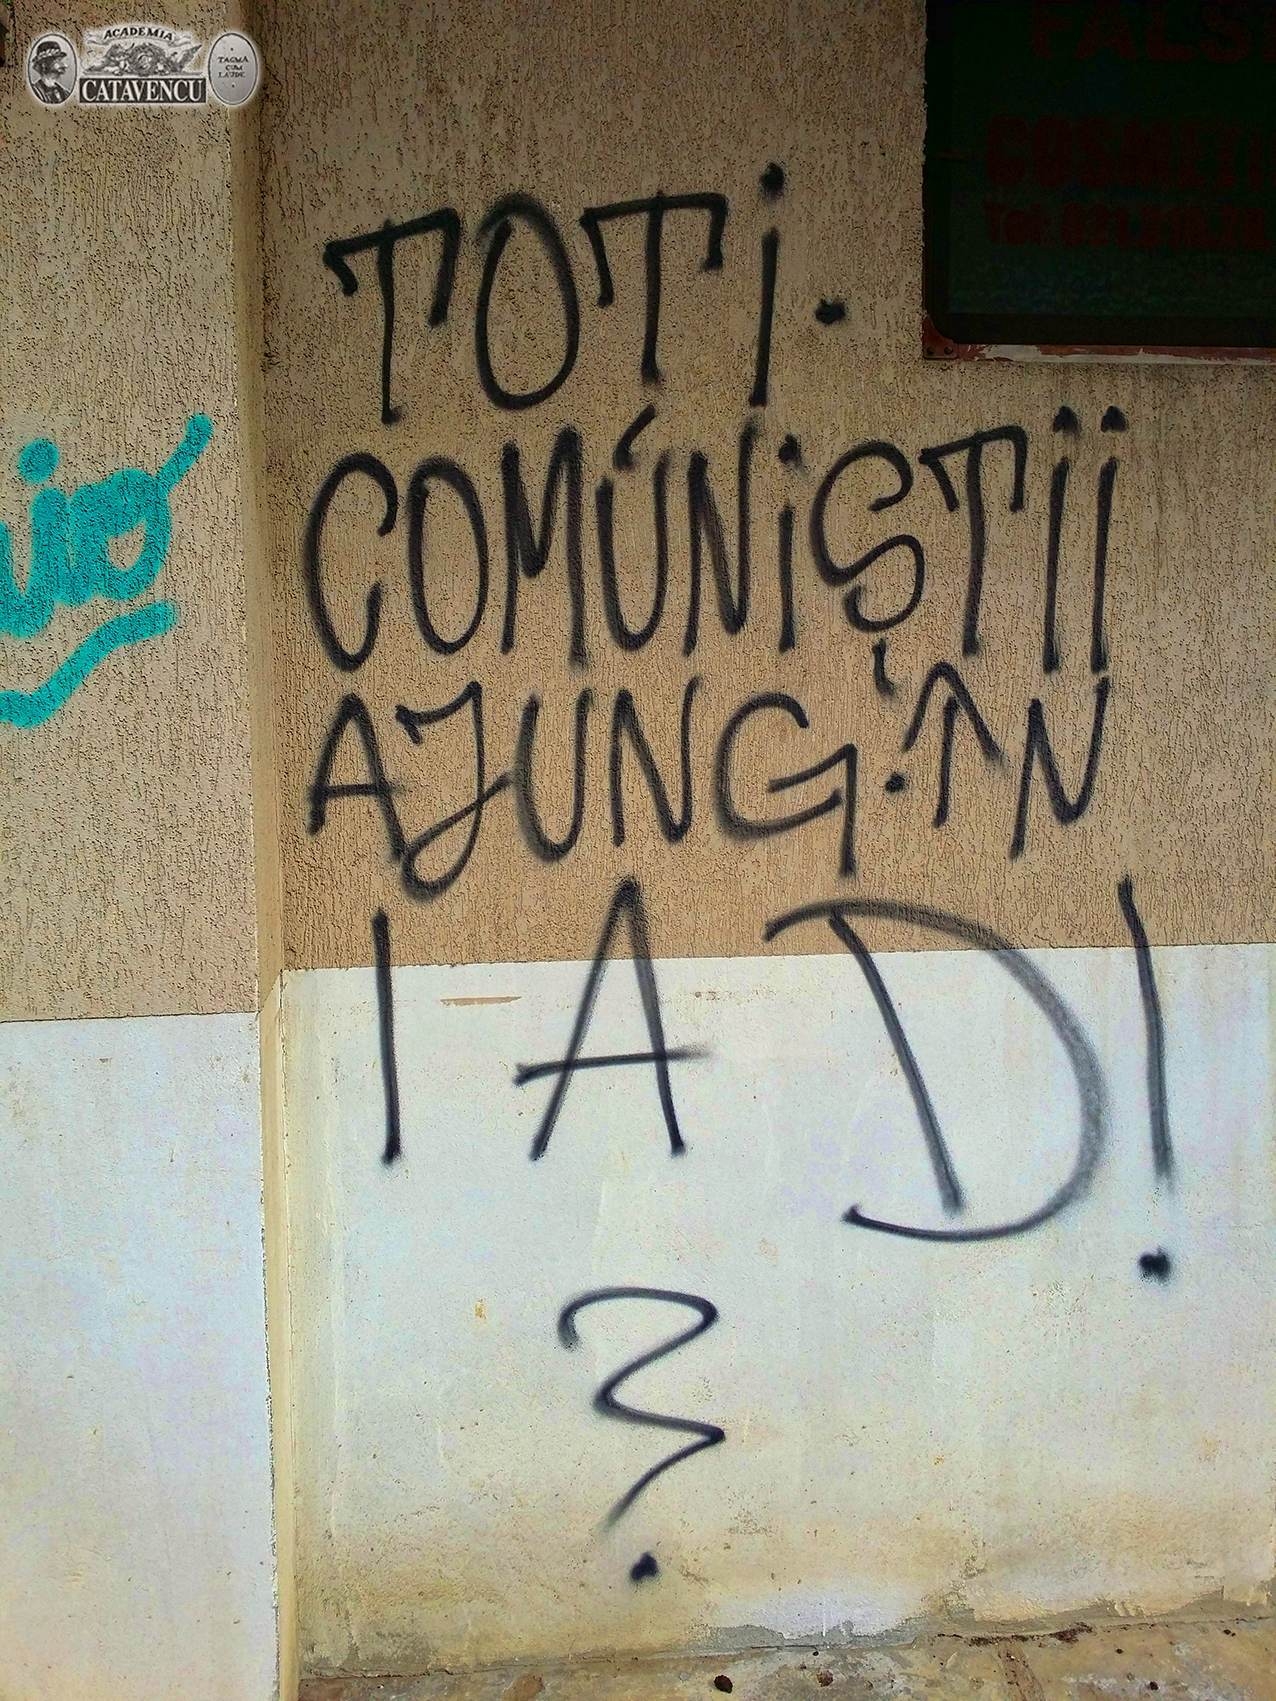 ACADEMIA
CATAVENCU
TAGMA
CUM
LAUDE
FALS
COSMETI
TOTI.
COMÚNIȘTII
AJUNG.ÎN
IAD!